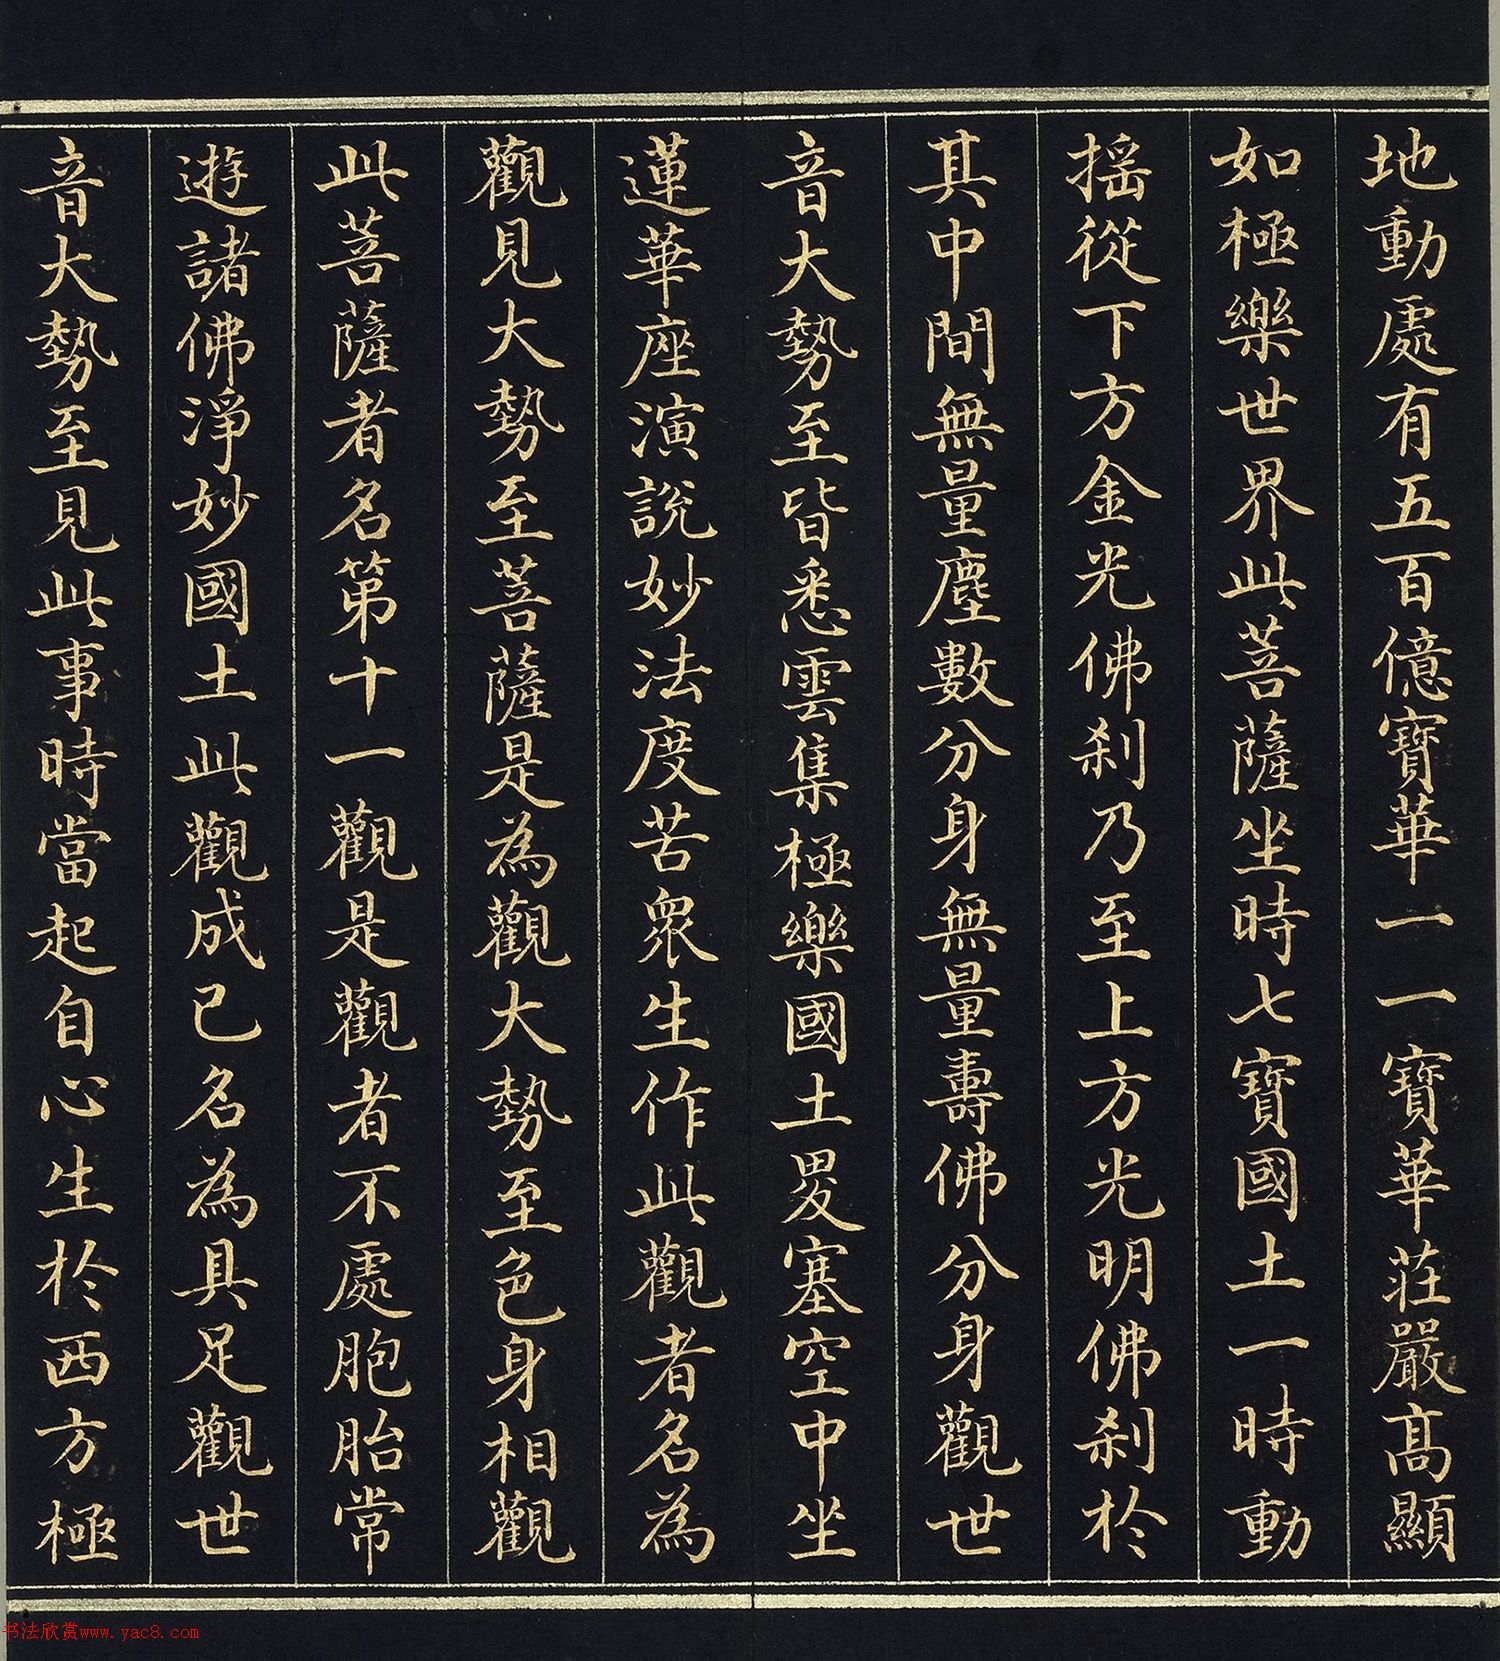 地動處有五百億寶華一一寶華莊嚴高顯
如極樂世界此菩薩坐時七寶國土一時動
搖從下方金光佛刹乃至上方光明佛刹於
其中間無量塵數分身無量壽佛分身觀世
音大勢至皆悉雲集極樂國土畟塞空中坐
蓮華座演說妙法度苦衆生作此觀者名為
觀見大勢至菩薩是為觀大勢至色身相觀
此菩薩者名第十一觀是觀者不處胞胎常
遊諸佛淨妙國土此觀成已名為具足觀世
音大勢至見此事時當起自心生於西方極
书法欣赏www.yac8.com